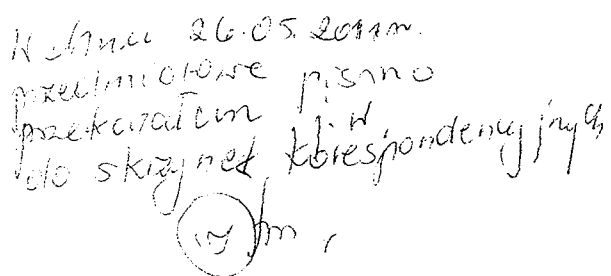 W dniu 26.05.2011r.
przedmiotowe pismo
przekazałem j.w
do skrzynek korespondencyjnych